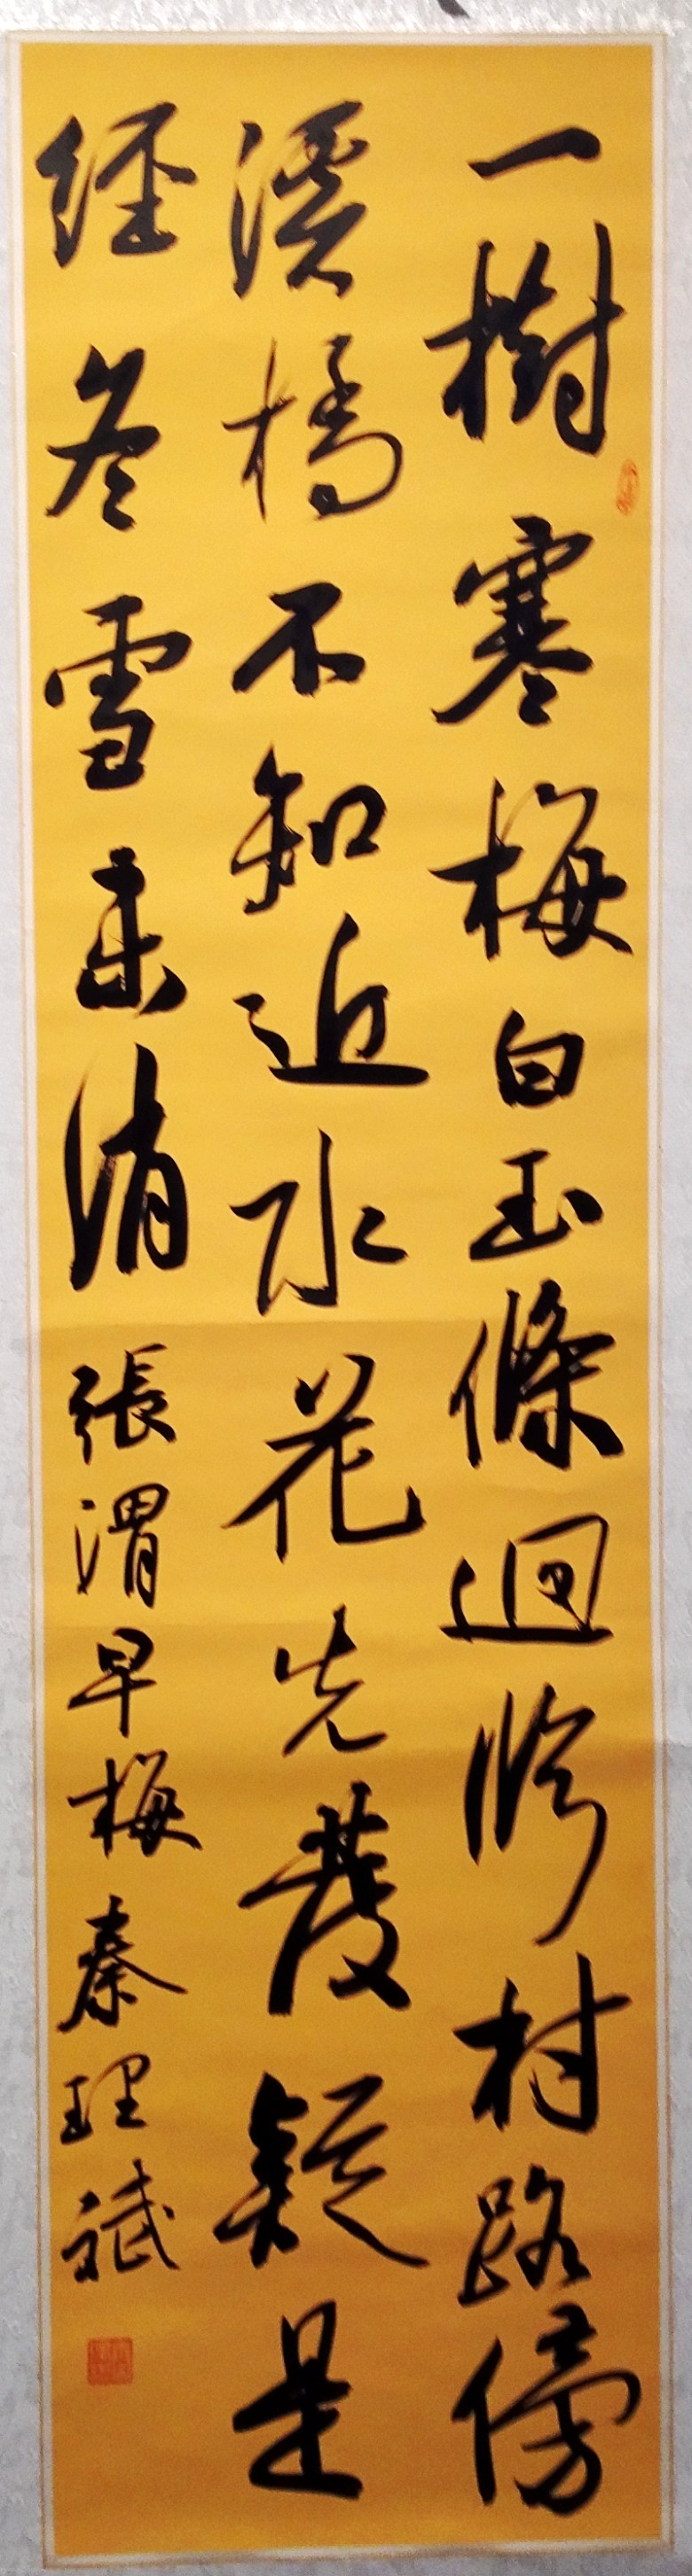 一樹寒梅白玉條迴臨村路傍
溪橋不知近水花先發疑是
經冬雪未消張渭早梅秦理斌